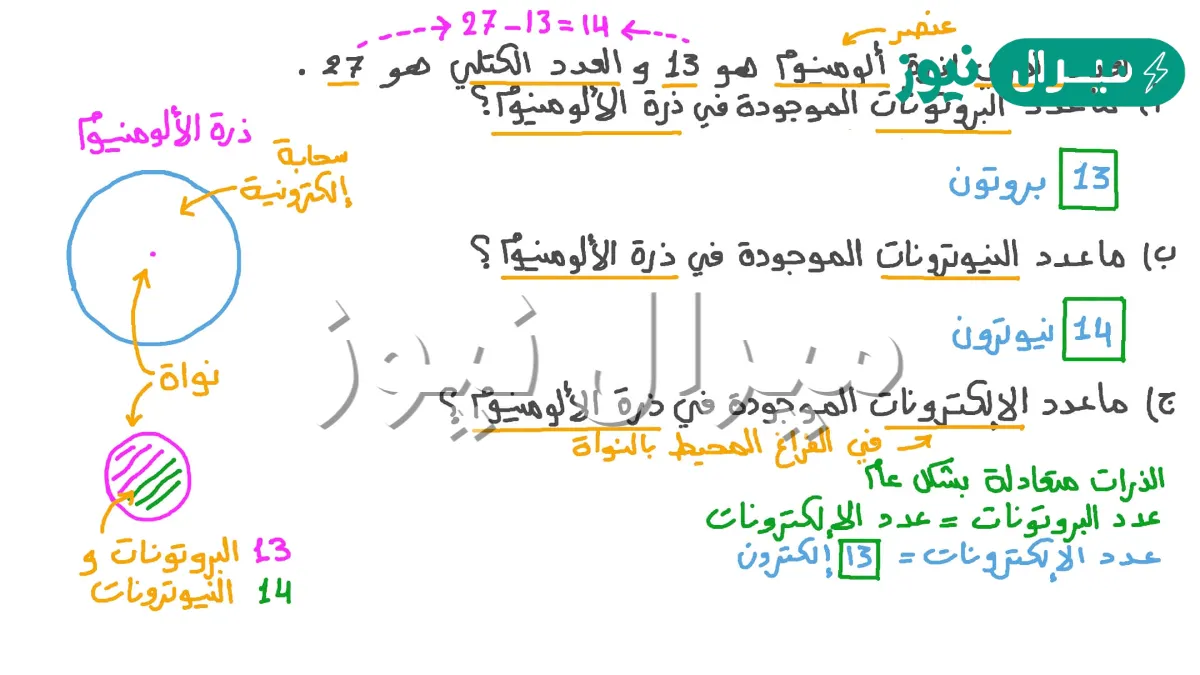 27 - 13 = 14
عنصر
ألومنيوم هو 13 و العدد الكتلي هو 27 .
ميرال نيوز
ماعدد البروتونات الموجودة في ذرة الألومنيوم؟
13 بروتون
ب) ماعدد النيوترونات الموجودة في ذرة الألومنيوم؟
14 نيوترون
ج) ماعدد الإلكترونات الموجودة في ذرة الألومنيوم؟
في الفراغ المحيط بالنواة
الذرات متعادلة بشكل عام
عدد البروتونات = عدد الإلكترونات
عدد الإلكترونات = 13 إلكترون
ذرة الألومنيوم
سحابة
إلكترونية
نواة
13 البروتونات و
14 النيوترونات
ميرال نيوز